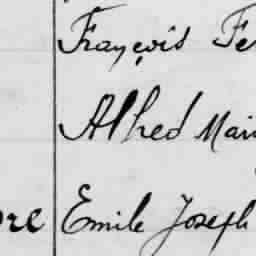 François Fe
Alfred Mari
ore Emile Joseph